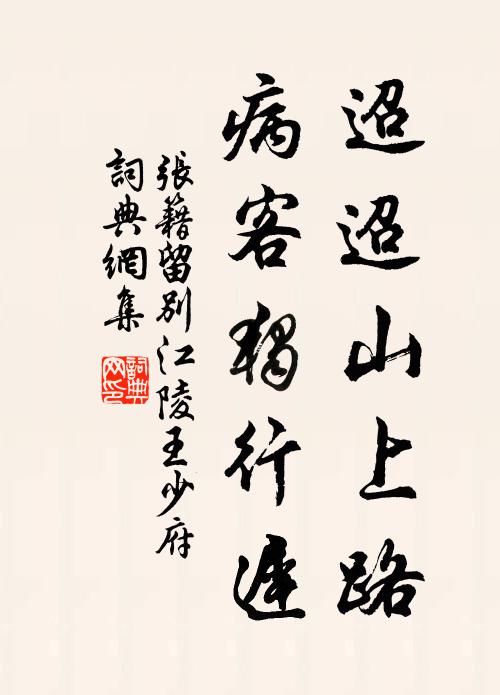 迢迢山上路
病客獨行遲
張籍留別江陵王少府
詞典網集
詞典
网印